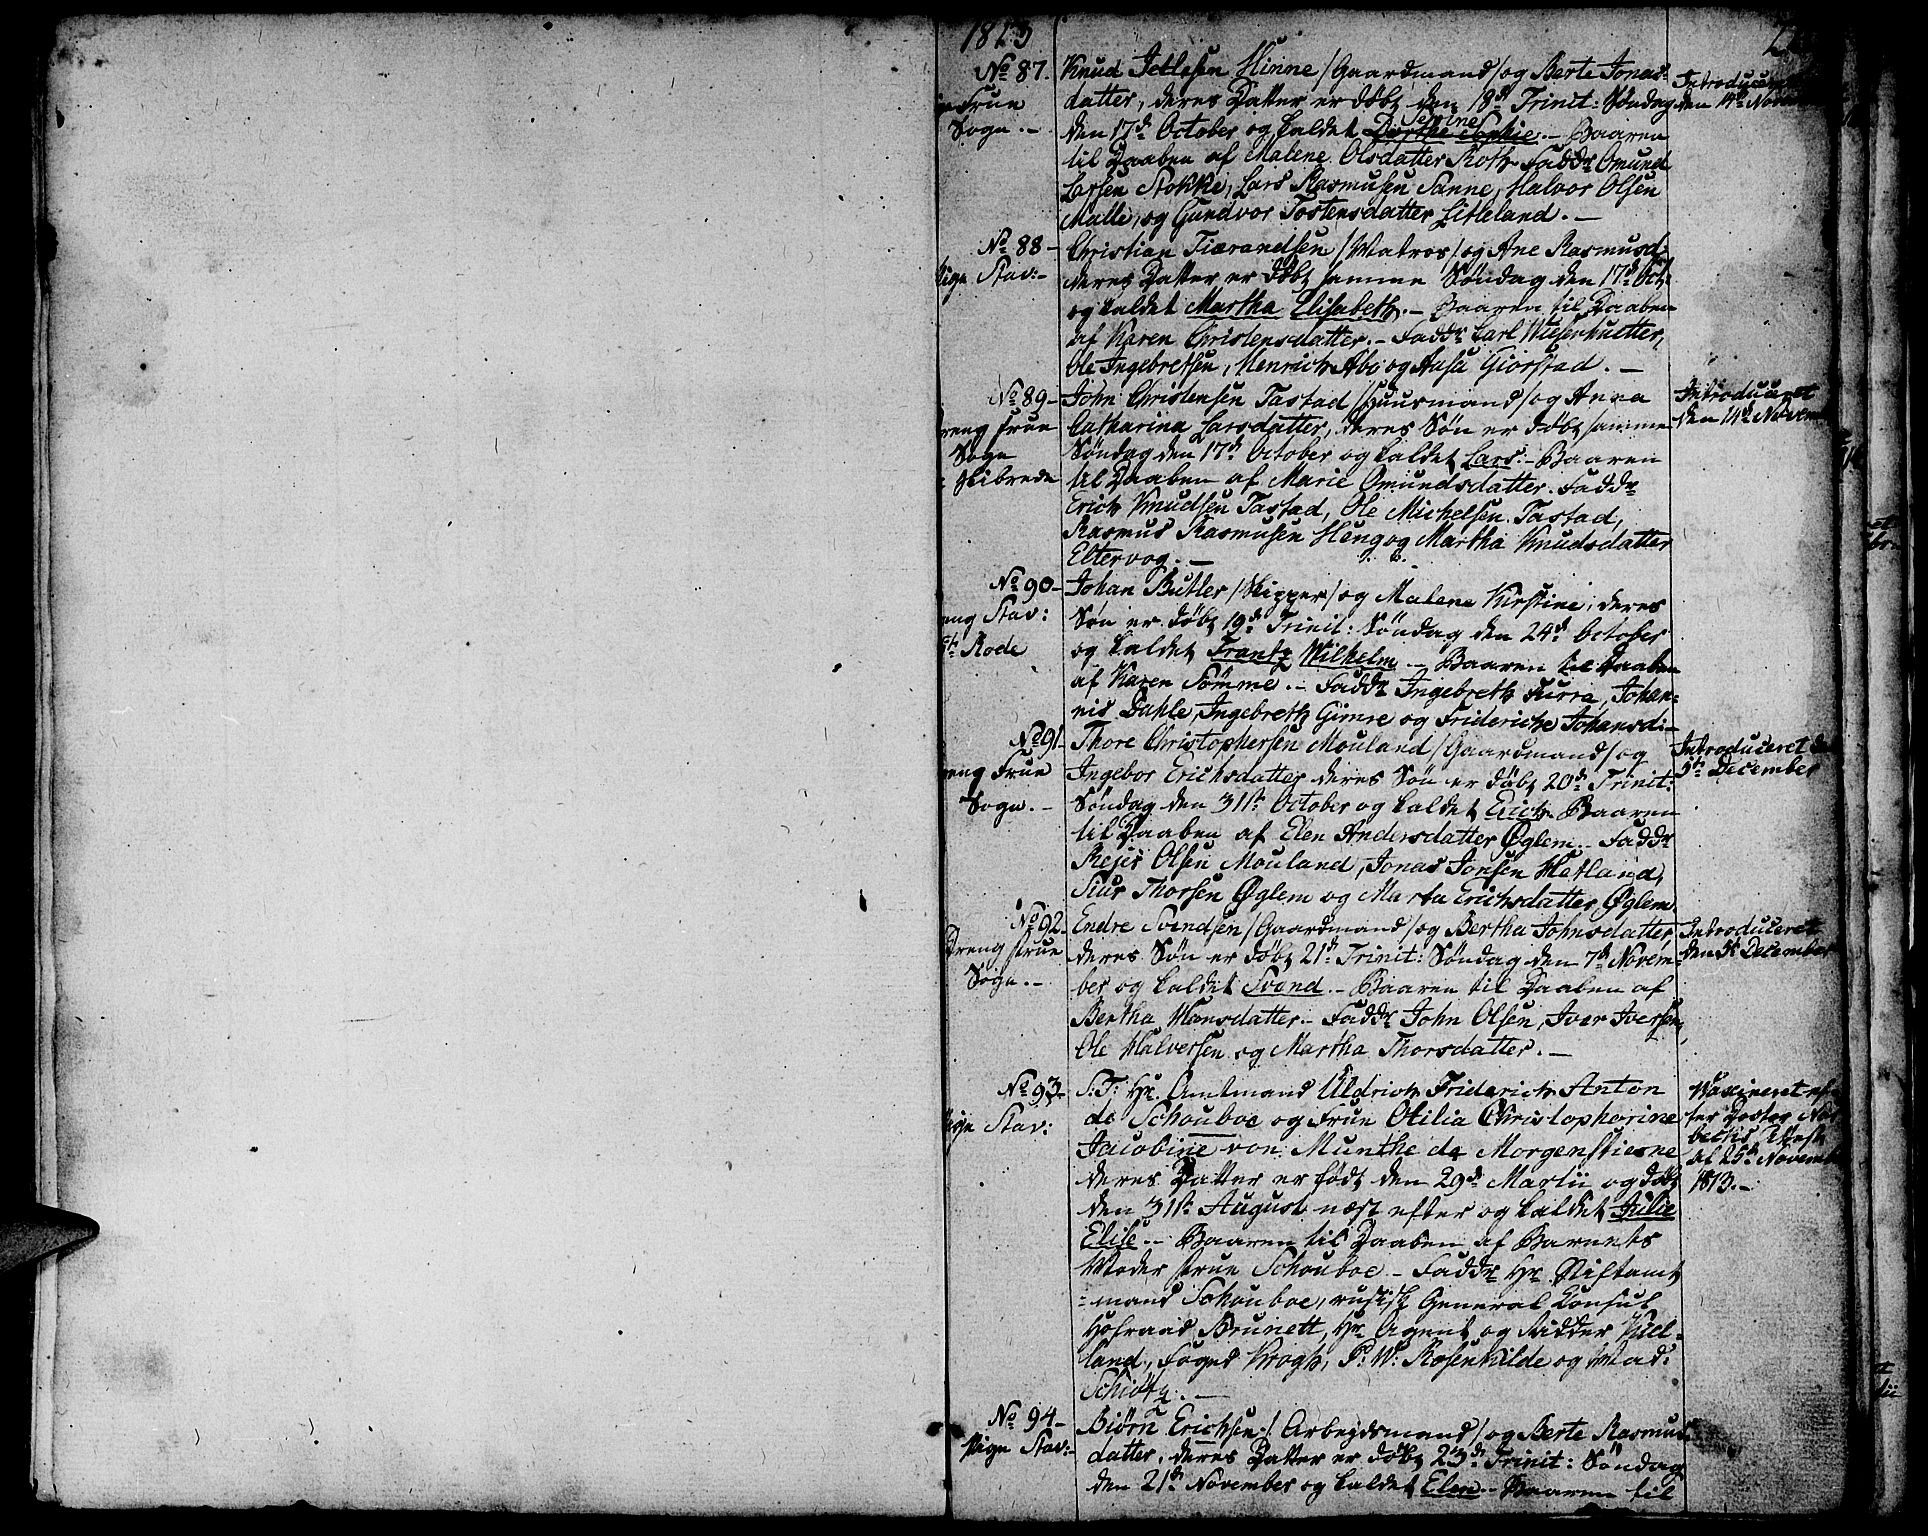 1813
No 87. Knud Jellesen Hinne /Gaardmand/ og Berte Jonas- Introduceret
Frue datter, deres Datter er døbt den 18de Trinit: Søndag den 14de Novem
Sogn.- den 17de October og kaldet Dorthe Sophie.- Baaren
Serine
til Daaben af Malene Olsdatter Roth. Faddr Omund
Larsen Stokke, Lars Rasmusen Sanne, Halvor Olsen
Malle, og Gundvor Tostensdatter Litleland.-
No 88- Christian Tiærandsen /Matros/ og Ane Rasmusd:
Pige Stav:- deres Datter er døbt samme Søndag den 17de Oct:
og kaldet Martha Elisabeth.- Baaren til Daaben
af Karen Christensdatter.- Faddr Carl Wieserhuetter,
Ole Ingebretsen, Henrich Abo og Aasa Giorstad.-
No 89- John Christensen Tastad /Huusmand/ og Anna Introduceret
reng Frue Catharina Larsdatter, deres Søn er døbt samme den 14de Novem
Sogn Søndag den 17de October og kaldet Lars.- Baaren
Hibrede til Daaben af Marie Omundsdatter. Faddr
Erich Knudsen Tastad, Ole Michelsen Tastad,
Rasmus Rasmusen Heng og Martha Knudsdatter
Eltervog.-
No 90- Johan Butler /Skipper/ og Malene Kirstine, deres
reng Stav: Søn er døbt 19de Trinit: Søndag den 24de October
Rode og kaldet Frantz Wilhelm.- Baaren til Daaben
af Karen Sømme.- Faddr Ingebreth Furra, Johan-
nis Dahle, Ingebreth Gimre og Friderich Johansd:
No 91- Thore Christophersen Mouland /Gaardmand/ og Introduceret d
reng Frue Ingebor Erichsdatter deres Søn er døbt 20de Trinit: 5te December
Sogn.- Søndag den 31te October og kaldet Erich. Baaren
til Daaben af Elen Andersdatter Øglem.- Faddr
Rejer Olsen Mouland, Jonas Jonsen Hetland,
Siur Thorsen Øglem og Marta Erichsdatter Øglem
No 92. Endre Svendsen /Gaardmand/ og Bertha Johnsdatter Introduceret
Dreng Frue deres Søn er døbt 21de Trinit: Søndag den 7de Novem- den 5te December
Sogn.- ber og kaldet Svend.- Baaren til Daaben af
Bertha Hansdatter.- Faddr John Olsen, Iver Iversen,
Ole Halversen og Martha Thorsdatter.-
No 93- S:T: Hr. Amtmand Uldrich Friderich Anton Vaxineret ef-
Pige Stav: de Schouboe og Frue Otilia Christopherine ter Doctor Nor
Jacobine von Munthe de Morgenstierne becks Attest
deres Datter er født den 29de Martii og døbt af 25de Novemb
den 31te August næst efter og kaldet Julie 1813.-
Elise.- Baaren til Daaben af Barnets
Moder Frue Schouboe.- Faddr Hr. Stiftamt
-mand Schouboe, rusisk General Konsul
Hofraad Brunett, Hr. Agent og Ridder Kiel-
land, Foged Krogh, P: W: Rosenkilde og Mad:
Schiøtz.-
No 94- Biørn Erichsen /Arbejdsmand/ og Berte Rasmus-
Pige Stav:- datter, deres Datter er døbt 23de Trinit: Søndag
den 21de November og kaldet Elen.- Baaren til